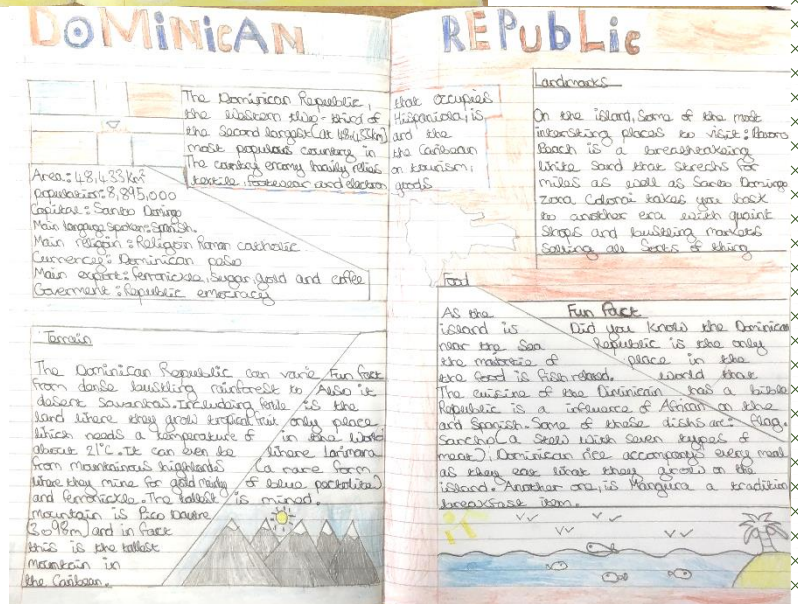 DOMiNicAN REPubLic
The Dominican Republic, that occupies
the western two-third of Hispaniola, is
the second largest (at 48,433km) and the
most populous country in the Caribean
The country enomy haily relies on tourism,
textile, footwear and electron goods
Area: 48,433 Km²
population: 8,895,000
Capital: Santo Domigo
Main langage spoken: Spanish.
Main religion: Religion Roman catholic
Currencey: Dominican peso
Main export: ferronickle, sugar, gold and coffee
Goverment: Republic emocracy
Terrain
The Dominican Republic can varie
from dense bustling rainforest to
desert savannas. Including fertile
land where they grow tropical fruit
which needs a temperature of
about 21°C. It can even be
from mountainous highlands
were they mine for gold
and ferronickle. The tallest
mountain is Pico Daurte
(3,098m) and in fact
this is the tallest
mountain in
the Caribean.
Fun fact
Also it
is the
only place
in the world
where larimara
(a rare form
of blue pectolite)
is mined.
Landmarks
On the island, some of the most
intersting places to visit:
Beach is a breathtakeing
white sand that strechs for
miles as well as Santo Domingo
zona Colonai takes you back
to another era with quaint
shops and bustling markets
selling all sorts of thing
Food
As the
island is
near the sea
the majortie of
the food is fish related.
The cuisine of the Dominicain
Republic is a infleuence of African
and Spanish. Some of these dishs are:
Sancho (a stew with seven types of
meat). Dominican rice accompany every meal
as they eat what they grow on the
island. Another one, is Mangura a tradition
breakfast item.
Fun Fact
Did you know the Dominican
Republic is the only
place in the
world that
has a bible
on the
flag.